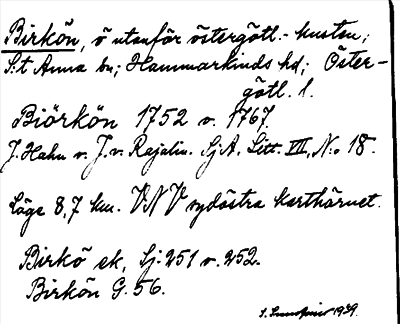 Birkön, ö utanför östergötl.-kusten;
S:t Anna sn; Hammarkinds hd; Öster-
götl. l.
Biörkön 1752 o. 1767.
J. Hahn o. J. v. Rajalin. Sj A. Litt. VII, N:o 18.
Läge 8,7 km. VNV sydöstra karthörnet.
Birkö ek, Sj. 251 o. 252.
Birkön G. 56.
1939.